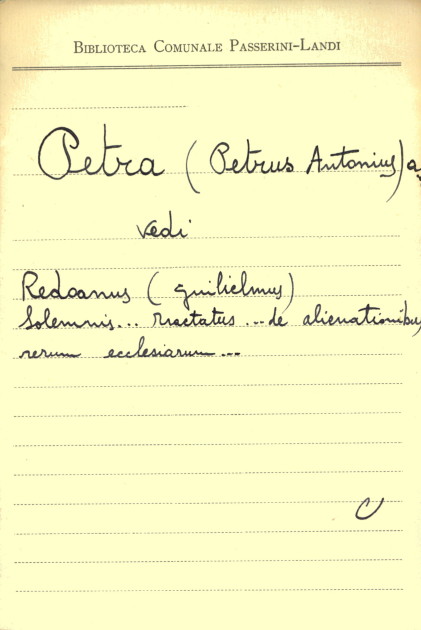 Biblioteca Comunale Passerini-Landi
Petra (Petrus Antonius) a
vedi
Redoanus (Guilielmus)
Solemnis... tractatus... de alienationibus
rerum ecclesiarum...